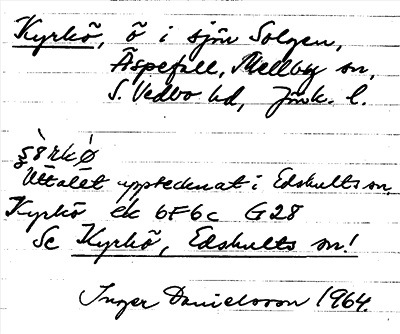 Kyrkö, ö i sjön Solgen,
Äspefall, Mellby sn,
S. Vedbo hd, Jönk. l.
Uttalet upptecknat i Edshults sn.
Kyrkö ek 6F6c G28
Se Kyrkö, Edshults sn!
Inger Danielsson 1964.